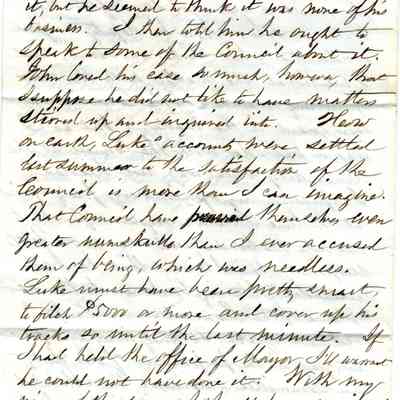 it, but he seemed to think it was none of his
business. I then told him he ought to
speak to some of the Council about it.
John loved his ease so much, however, that
I suppose he did not like to have matters
stirred up and inquired into. How
on earth, Luke's accounts were settled
last summer to the satisfaction of the
Council is more than I can imagine.
That Council have proved themselves even
greater numskulls than I ever accused
them of being, which was needless.
Luke must have been pretty smart,
to filch $5000 or more and cover up his
tracks so until the last minute. If
I had held the office of Mayor, I'll warrant
he could not have done it. With my